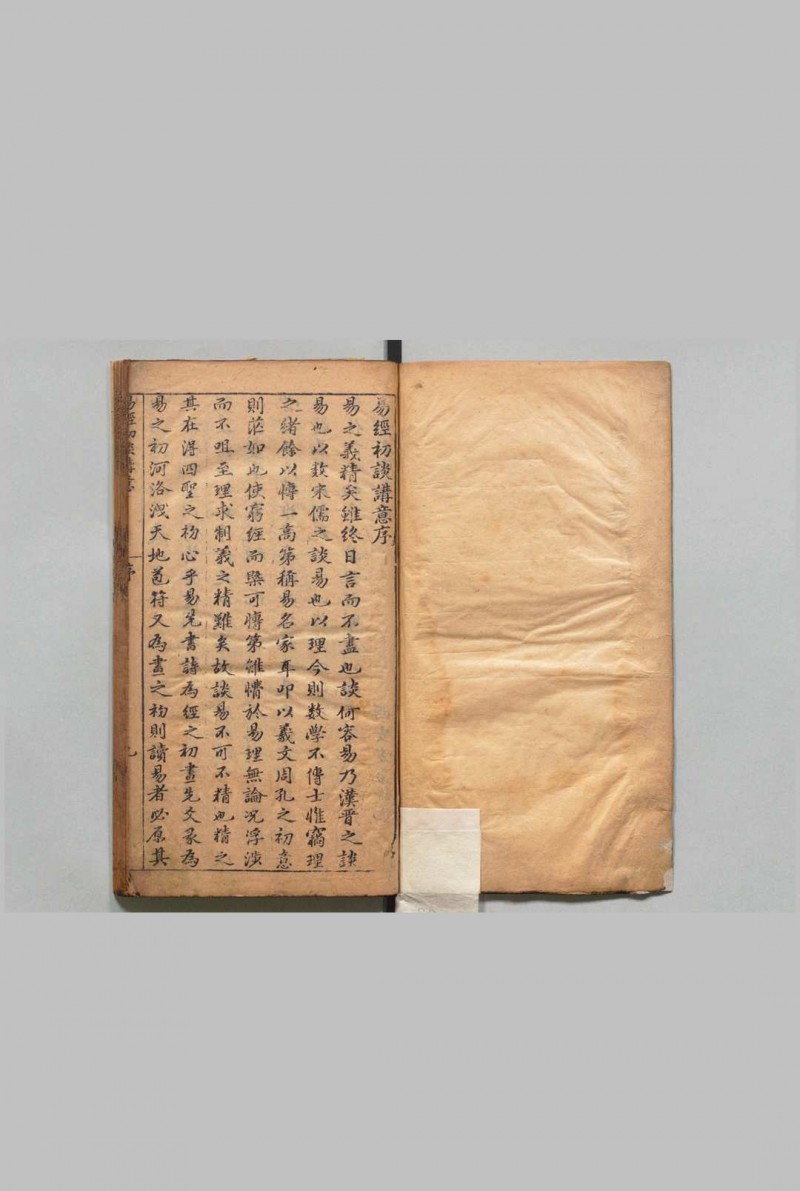 易經初談講意序
易之義精矣雖終日言而不盡也談何容易乃漢晉之談
易也以數宋儒之談易也以理今則數學不傳士惟竊理
之緒餘以博一高第稱易名家耳叩以羲文周孔之初意
則茫如也使窮經而槩可博第雖懵於易理無論况浮淡
而不咀至理求制義之精難矣故談易不可不精也精之
其在得四聖之初心乎易先書詩為經之初畫先爻彖為
易之初河洛洩天地苞符又為畫之初則讀易者必原其
易經初談講意
序